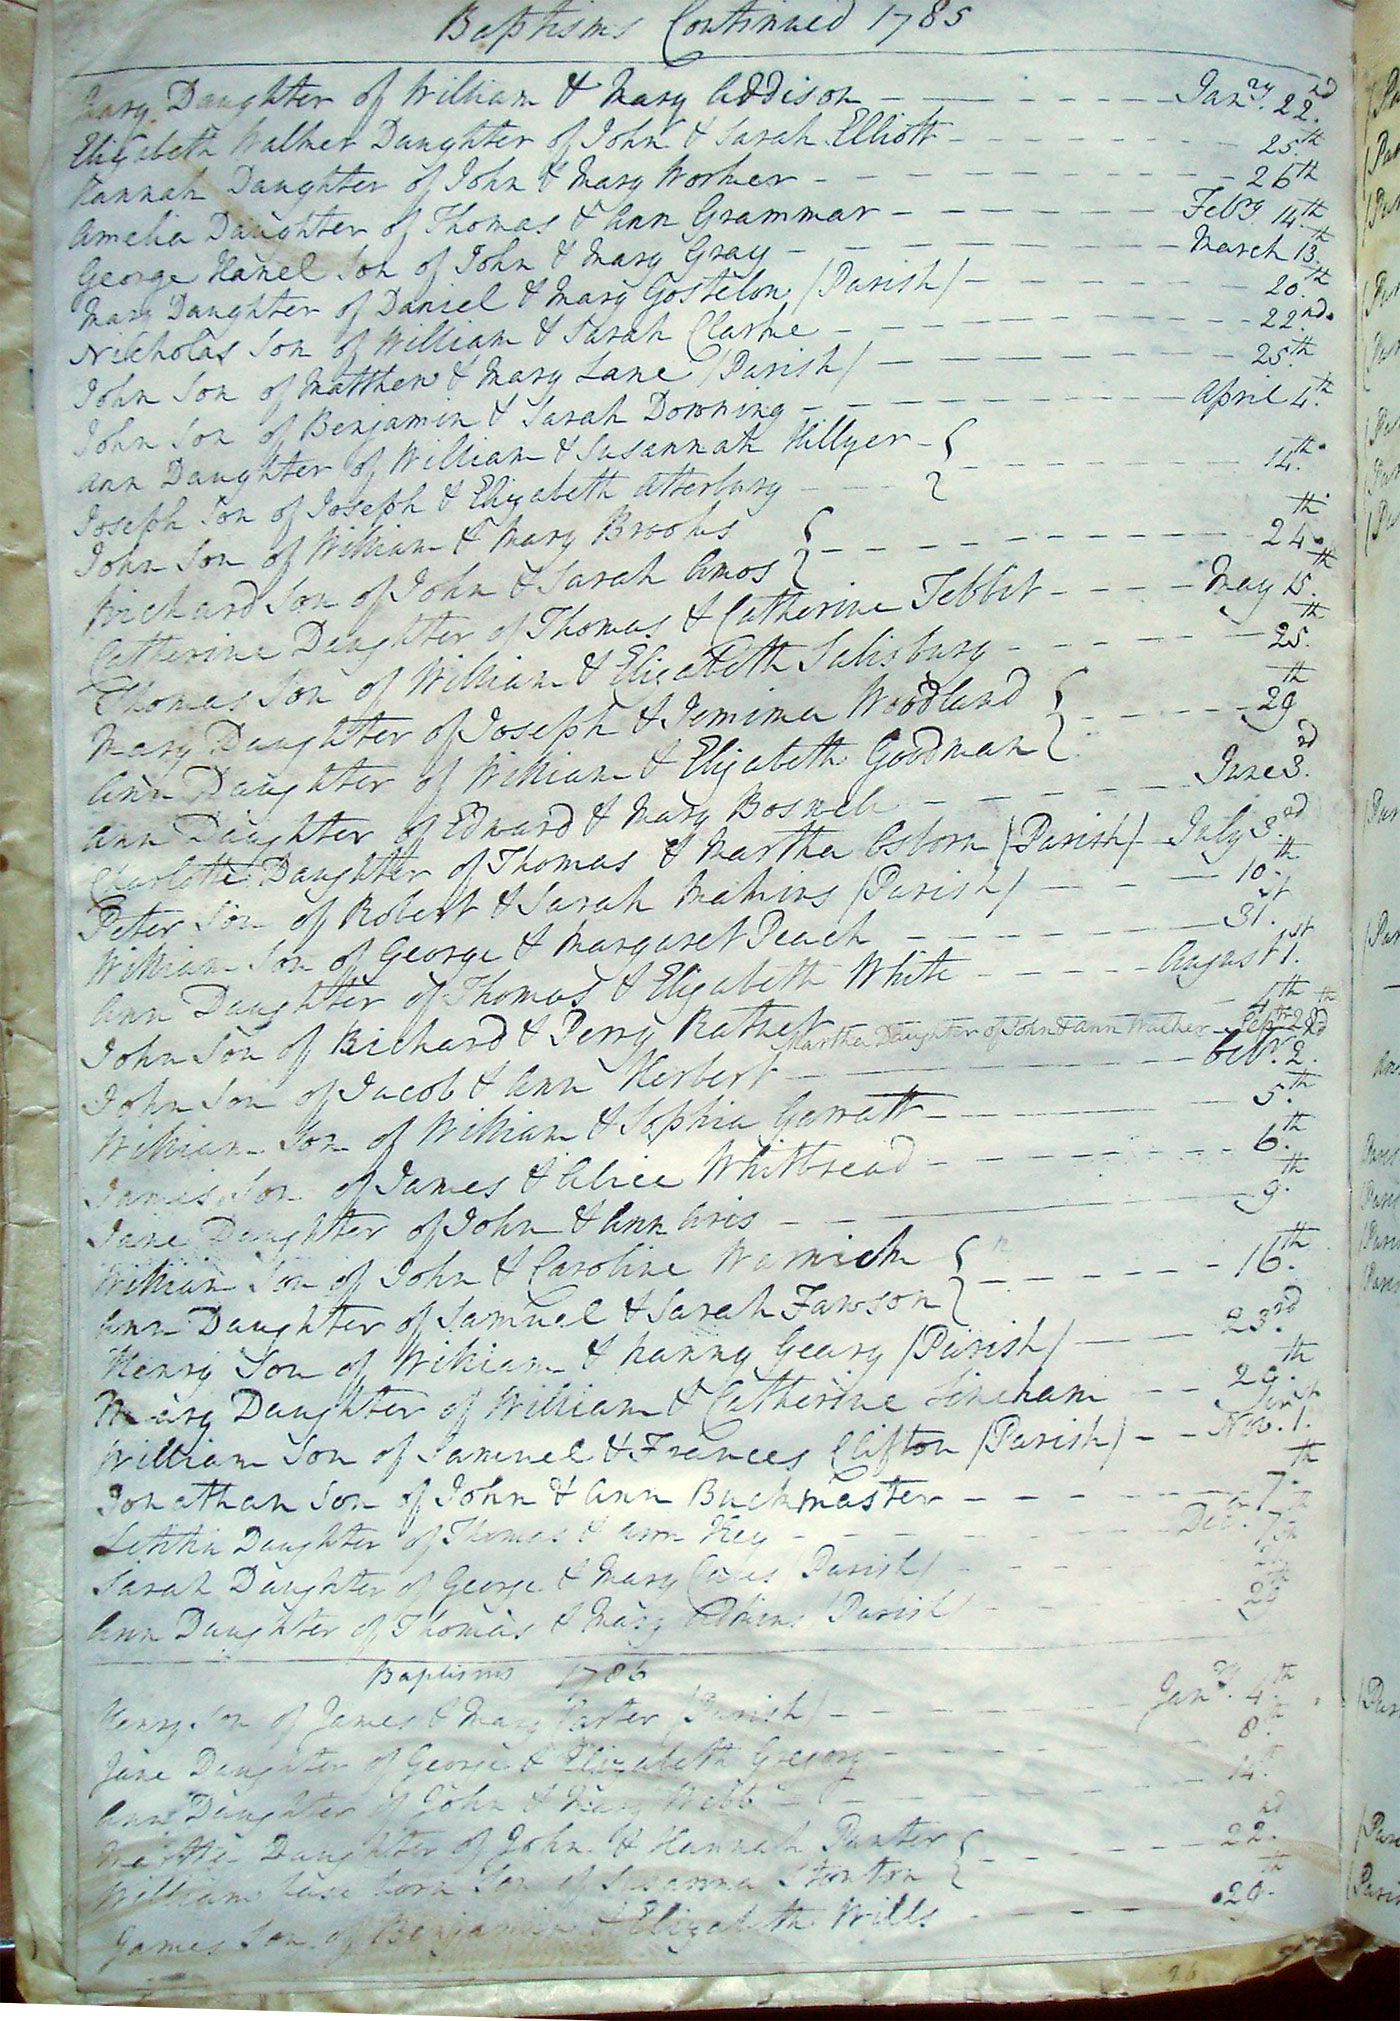 Baptisms Continued 1785
Mary Daughter of William & Mary Addison Jan.ry 22.nd
Elizabeth Walker Daughter of John & Sarah Elliott 25th
Hannah Daughter of John & Mary Worker 26th
Amelia Daughter of Thomas & Ann Grammar Feb.ry 14.th
George Hanel Son of John & Mary Gray March 13.th
Mary Daughter of Daniel & Mary Gostelon (Parish) 20.th
Nicholas Son of William & Sarah Clarke 22.nd
John Son of Matthew & Mary Lane (Parish) 25.th
John Son of Benjamin & Sarah Downing April 4.th
Ann Daughter of William & Susannah Hillyer
Joseph Son of Joseph & Elizabeth Atterbury 14.th
John Son of William & Mary Brooks
Richard Son of John & Sarah Amos 24.th
Catherine Daughter of Thomas & Catherine Tebbit May 15.th
Thomas Son of William & Elizabeth Salisbury 25.th
Mary Daughter of Joseph & Jemima Woodland
Ann Daughter of William & Elizabeth Goodman 29th
Ann Daughter of Edward & Mary Boswell June 3.rd
Charlotte Daughter of Thomas & Martha Osborn (Parish) July 3.rd
Peter Son of Robert & Sarah Makins (Parish) 10.th
William Son of George & Margaret Peach 31.st
Ann Daughter of Thomas & Elizabeth White August 1.st
John Son of Richard & Perry Rathet 4th
Martha Daughter of John & Ann Walker Sep.tr 28th
John Son of Jacob & Ann Herbert Octbr. 2.nd
William Son of William & Sophia Garratt 5.th
James Son of James & Alice Whitbread 6.th
Jane Daughter of John & Ann Aris 9.th
William Son of John & Caroline Warnick
Ann Daughter of Samuel & Sarah Fawson 16.th
Henry Son of William & hanny Geary (Parish) 23.rd
Mary Daughter of William & Catherine Lineham 29.th
William Son of Samuel & Frances Clifton (Parish) Nov. 1.st
Jonathan Son of John & Ann Buckmaster 7.th
Letitia Daughter of Thomas & Ann Key Dec.r 7th
Sarah Daughter of George & Mary (Parish)
Ann Daughter of Thomas & Mary Adkins (Parish)
Baptisms 1786
Henry Son of James & Mary Carter (Parish) Jan.ry 4.th
Jane Daughter of George & Elizabeth Gregory 8.th
Ann Daughter of John & Mary Webb 14.th
Martha Daughter of John & Hannah Punter
William base born Son of Susanna Stonton 22.nd
James Son of Benjamin & Elizabeth Wills